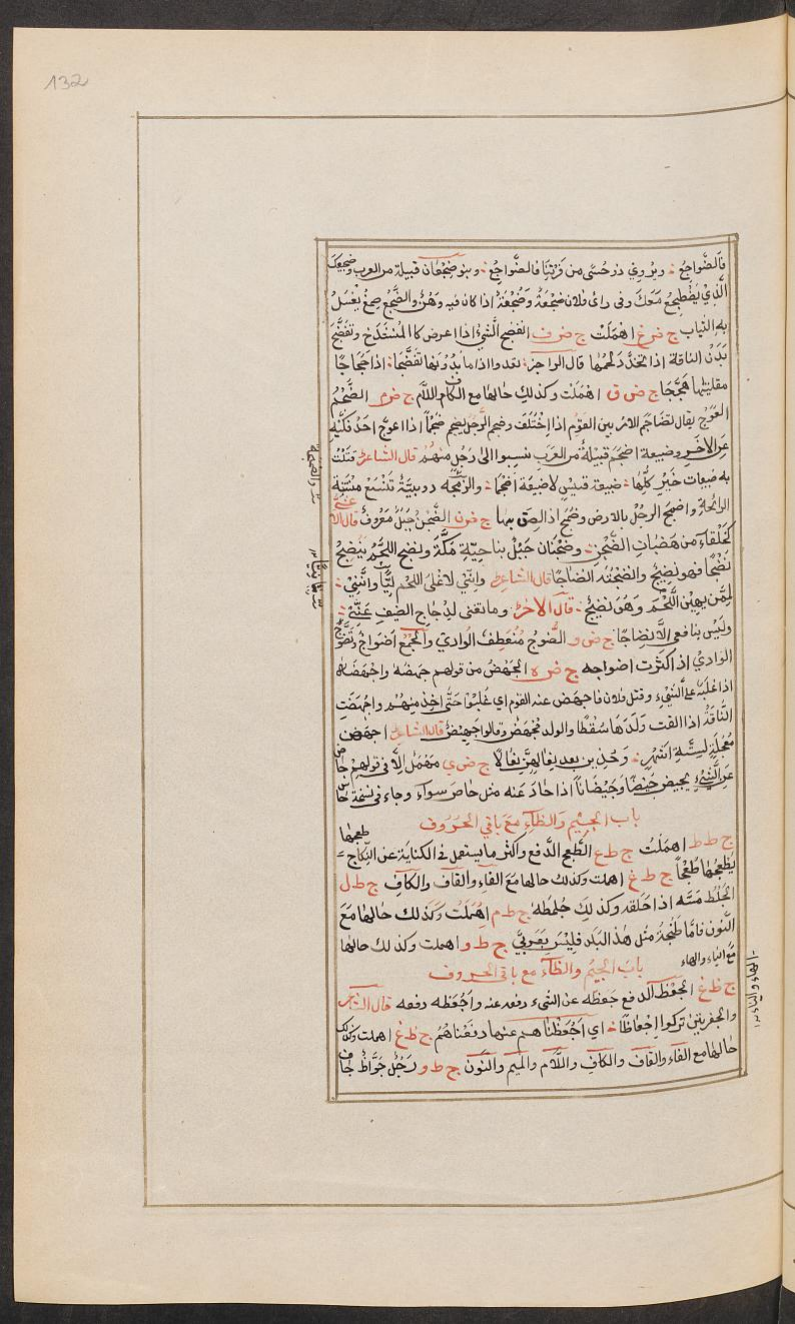 132
فالضَّواجِعُ ؞ ويُروي دز حُسَّى من فَرَتْنَا فالضَّواجِعُ ؞ وبنو ضِجْعان قبيلة من العرب وضجيعك
الّذِيْ يَضْطَجِعُ مَعَكَ وفى رائ فلان ضَجْعَةٌ وَضُجْعَةٌ اذا كان فيه وَهْنٌ والضَّجْعُ صِمغٌ يُغْسَلُ
به الثياب ج ض غ اهْمَلَتْ ج ض ف انفضج الشَّئُ اذا اعرض كا المُنْشَدَخ وتفضَّجَ
بَدَنُ الناقة اذا تخدَّدَ لحمُها قال الراجز ؞ تعدوا اذا ما بُدْنُها تفضَّجا ؞ اذا حَجاجا
مقلتيْها هَجَّجَا ج ض ق اهْمَلَت وكذلك حالها مع الكاف واللام ج ض م الضَّجَمُ
العَوَج يقال تضاجَم الامرُ بين القوم اذا اِخْتَلَفَ وضجم الرَّجل يضجم ضجماً اذا اعوج احد فكَّيْه
عن الآخر وضبيعة اضجَم قبيلةٌ من العَرَب نسبوا الى رَجُل منهم قال الشاعر قَتَلْتُ
به ضبيعات خَيْرَ كُلِّها ؞ ضبيعة قيس لاضبيعة اضجما ؞ والضّمجه دويبَّةٌ تلسَعُ مُنْتِنَة
الرائحة واضمج الرجُلُ بالارض وضَمَجَ اذا لصق بها ج ض ن الضَّجْنُ جَبَلٌ مَعْرُوف قال الاعشى
كَخَلْقَاءَ من هَضَبات الضَّجَن ؞ وضجْنَان جَبَلٌ بناحيَة مَكَّة ونضج اللحمُ يَنْضِجُ
نَضْجًا فهو نضِيْجٌ وانضجتُه انضاجًا قال الشاعر وانِّنى لاغلى اللحم نِيًّا وانَّنِيْ ؞
لمِمَّن يهِيْن اللَّحْمَ وَهُوَ نَضِيْجٌ ؞ قال الآخر وما تغنى لدَجاج الضيفِ عَنّى ؞
وليس بنافعى الَّا نضاجًا ج ض و الضَّوجُ مُنْعَطِفُ الوادي والجمع اضواجٌ وتَضَوَّجَ
الوادِيْ اذا كثرَت اضواجه ج ض ه الجَهْضُ من قولهم جهضه واجْهَضَه
اذا غلبَهُ على الشيء وقتل فلان فاجهِضَ عنه القوم اي غُلِبُوا حَتّى اخِذ منهُم واجْهَضَتِ
النَّاقَةُ اذا القت وَلَدَها سُقْطًا والولد مُجْهَضٌ وقالوا جَهِيْضٌ قال الشاعر اجهضن
مُعْجَلَةٍ لستَّةِ اشْهُرٍ ؞ وَحُذين بعد نِعالِهنَّ نِعالاً ج ض ي مهْمَلٌ الا في قولهم جاضَ
عن الشَّئِ يجيضُ جَيْضًا وجَيَضَانًا اذا حادَ عَنه مثل حاصَ سواء وجاء في نسْخة جَاضَ
باب الجيْم والطآء مَع باقي الحروف
ج ط ط اهمَلتْ ج ط ع الطَّعج الدفع واكثر ما يستعمل فى الكناية عن النِّكاح = طعجها
يطعجها طعْجاً ج ط غ اهملت وكذلك حالها مَعَ الفاء والقاف والكاف ج ط ل
الجَلط مَسَّه اذا حَلقه وكذلك جَلْمَطه ج ط م اهْمَلت وكذلك حالها مَعَ
النُّون فامَّا طنجة مثل هذا البَلد فليْسَ بعَربيٍّ ج ط و اهملت وكذلك حالها
مع الياء والهاء
باب الجيْم والظّاء مع باقى الحروف
ج ظ ع الجَعْظ الدفع جعظه عن الشيء دفعه عنه واَجْعَظه دفعه قال الشاعر
والجفرتين تركوا إجْعَاظًا ؞ اي اَجْعَظْنا هم عنها دفعْناهُم ج ظ غ اهملت وكذلك
حالها مع الفاء والقاف والكاف واللّام والميم والنّون ج ظ و رَجُلٌ جَوَّاظٌ جاف